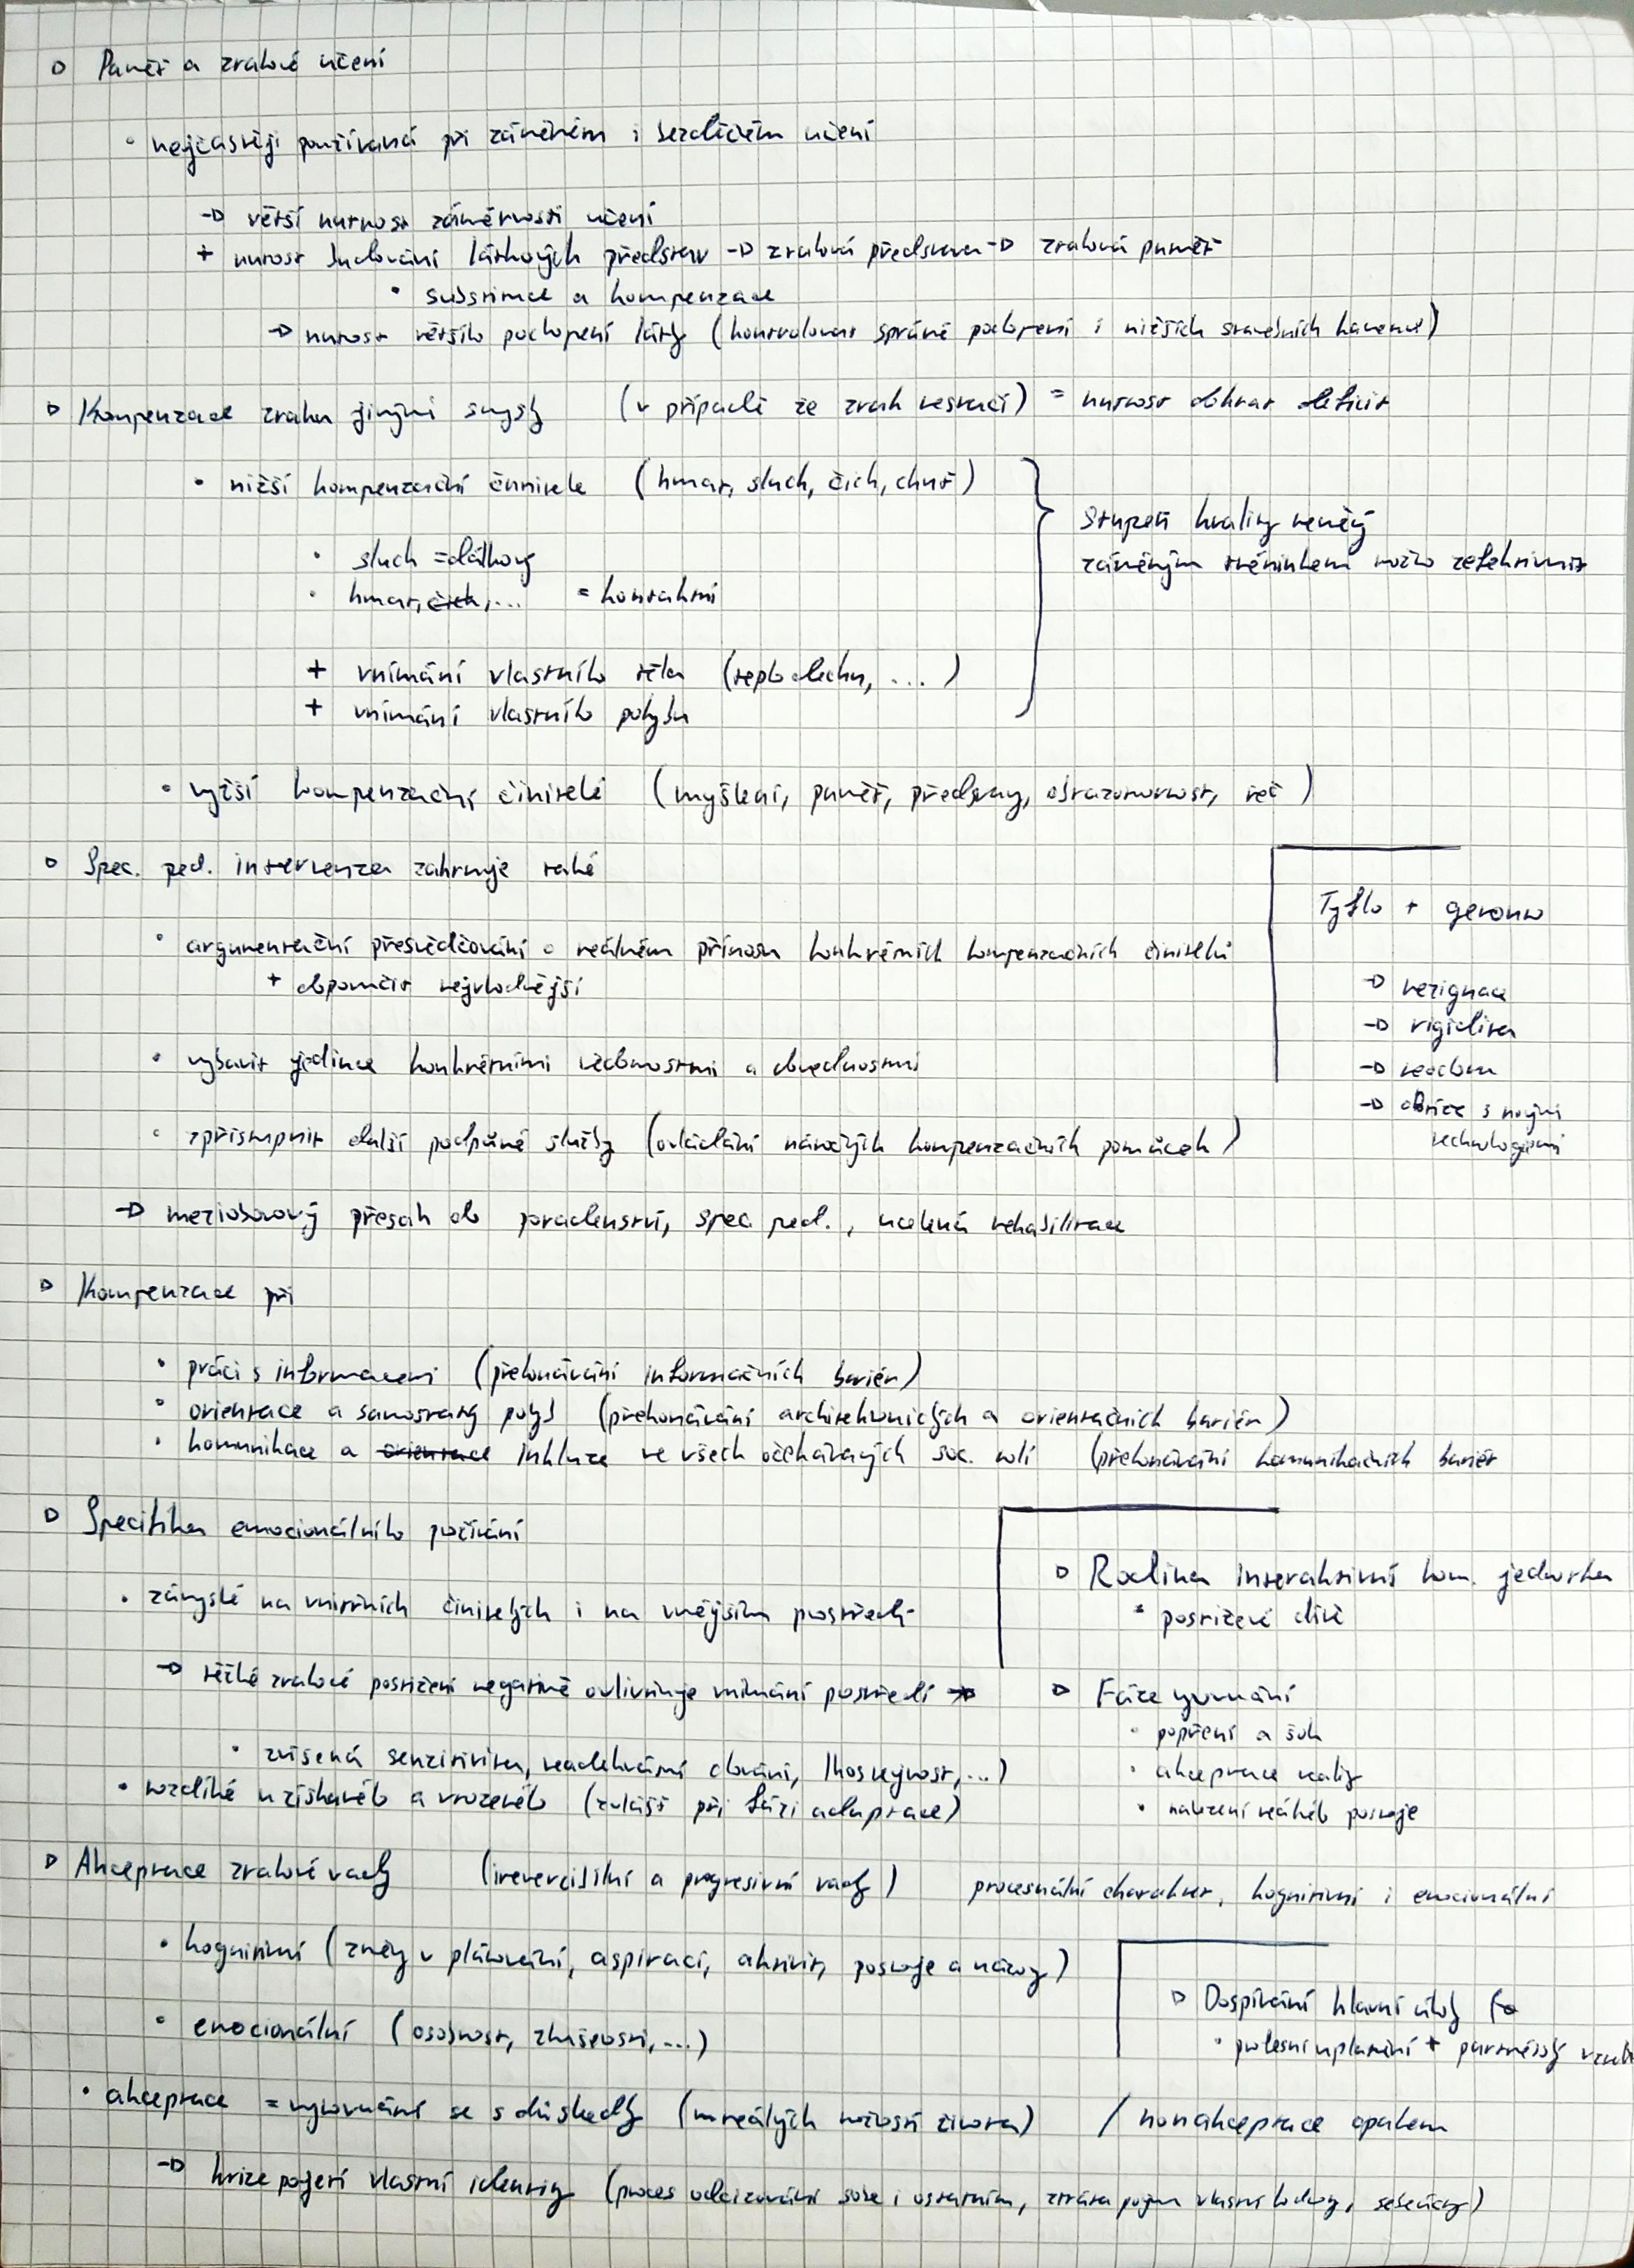 Paměť a zrakové učení
• nejčastěji používaná při záměrném i bezděčném učení
→ větší nutnost záměrnosti učení
+ nutnost budování látkových představ → zraková představa → zraková paměť
• substituce a kompenzace
→ nutnost většího pochopení látky (kontrolovat správné pochopení i nižších stavebních kamenů)
Kompenzace zraku jinými smysly (v případě že zrak nestačí) = nutnost dohnat deficit
• nižší kompenzační činitele (hmat, sluch, čich, chuť)
stupeň kvality neměný
záměrným tréninkem možno zefektivnit
• sluch = dálkový
• hmat, čich, ... = kontaktní
+ vnímání vlastního těla (teplo dechu, ...)
+ vnímání vlastního pohybu
• vyšší kompenzační činitelé (myšlení, paměť, představy, obrazotvornost, řeč)
Spec. ped. intervence zahrnuje také
• argumentační přesvědčování o reálném přínosu konkrétních kompenzačních činitelů
+ doporučit nejvhodnější
• vybavit jedince konkrétními vědomostmi a dovednostmi
• zpřístupnit další podpůrné služby (ovládání náročných kompenzačních pomůcek)
→ mezioborový přesah do poradenství, spec ped., ucelená rehabilitace
Tyflo + geronto
→ rezignace
→ rigidita
→ nedobrá
→ obtíže s novými
technologiemi
Kompenzace při
• práci s informacemi (překonávání informačních bariér)
• orientace a samostatný pohyb (překonávání architektonických a orientačních bariér)
• komunikace a orientace inkluze ve všech očekávaných soc. rolí (překonávání komunikačních bariér
Specifika emocionálního prožívání
• závyslé na vnitřních činitelých i na vnějším prostředí
→ těžké zrakové postižení negativně ovlivňuje vnímání prostředí →
• zvýšená senzitivita, neadekvátní chování, lhostejnost, ...)
• rozdílné u získaného a vrozeného (zvlášť při fázi adaptace)
Rodina interaktivní kom. jednotka
• postižené dítě
Fáze vyrovnání
• popření a šok
• akceptace reality
• nalezení reálného postoje
Akceptace zrakové vady (ireverzibilní a progresivní vady) procesuální charakter, kognitivní i emocionální
• kognitivní (změny v plánování, aspirací, aktivit, postoje a názory)
• emocionální (osobnost, zkušenosti, ...)
Dospívání hlavní úkoly
• profesní uplatnění + partnerský vztah
• akceptace = vyrovnání se s důsledky (i reálných možností života) / nonakceptace opakem
→ krize pojetí vlastní identity (proces odcizování sobě i ostatním, ztráta pojmu vlastní hodnoty, sebeúcty)